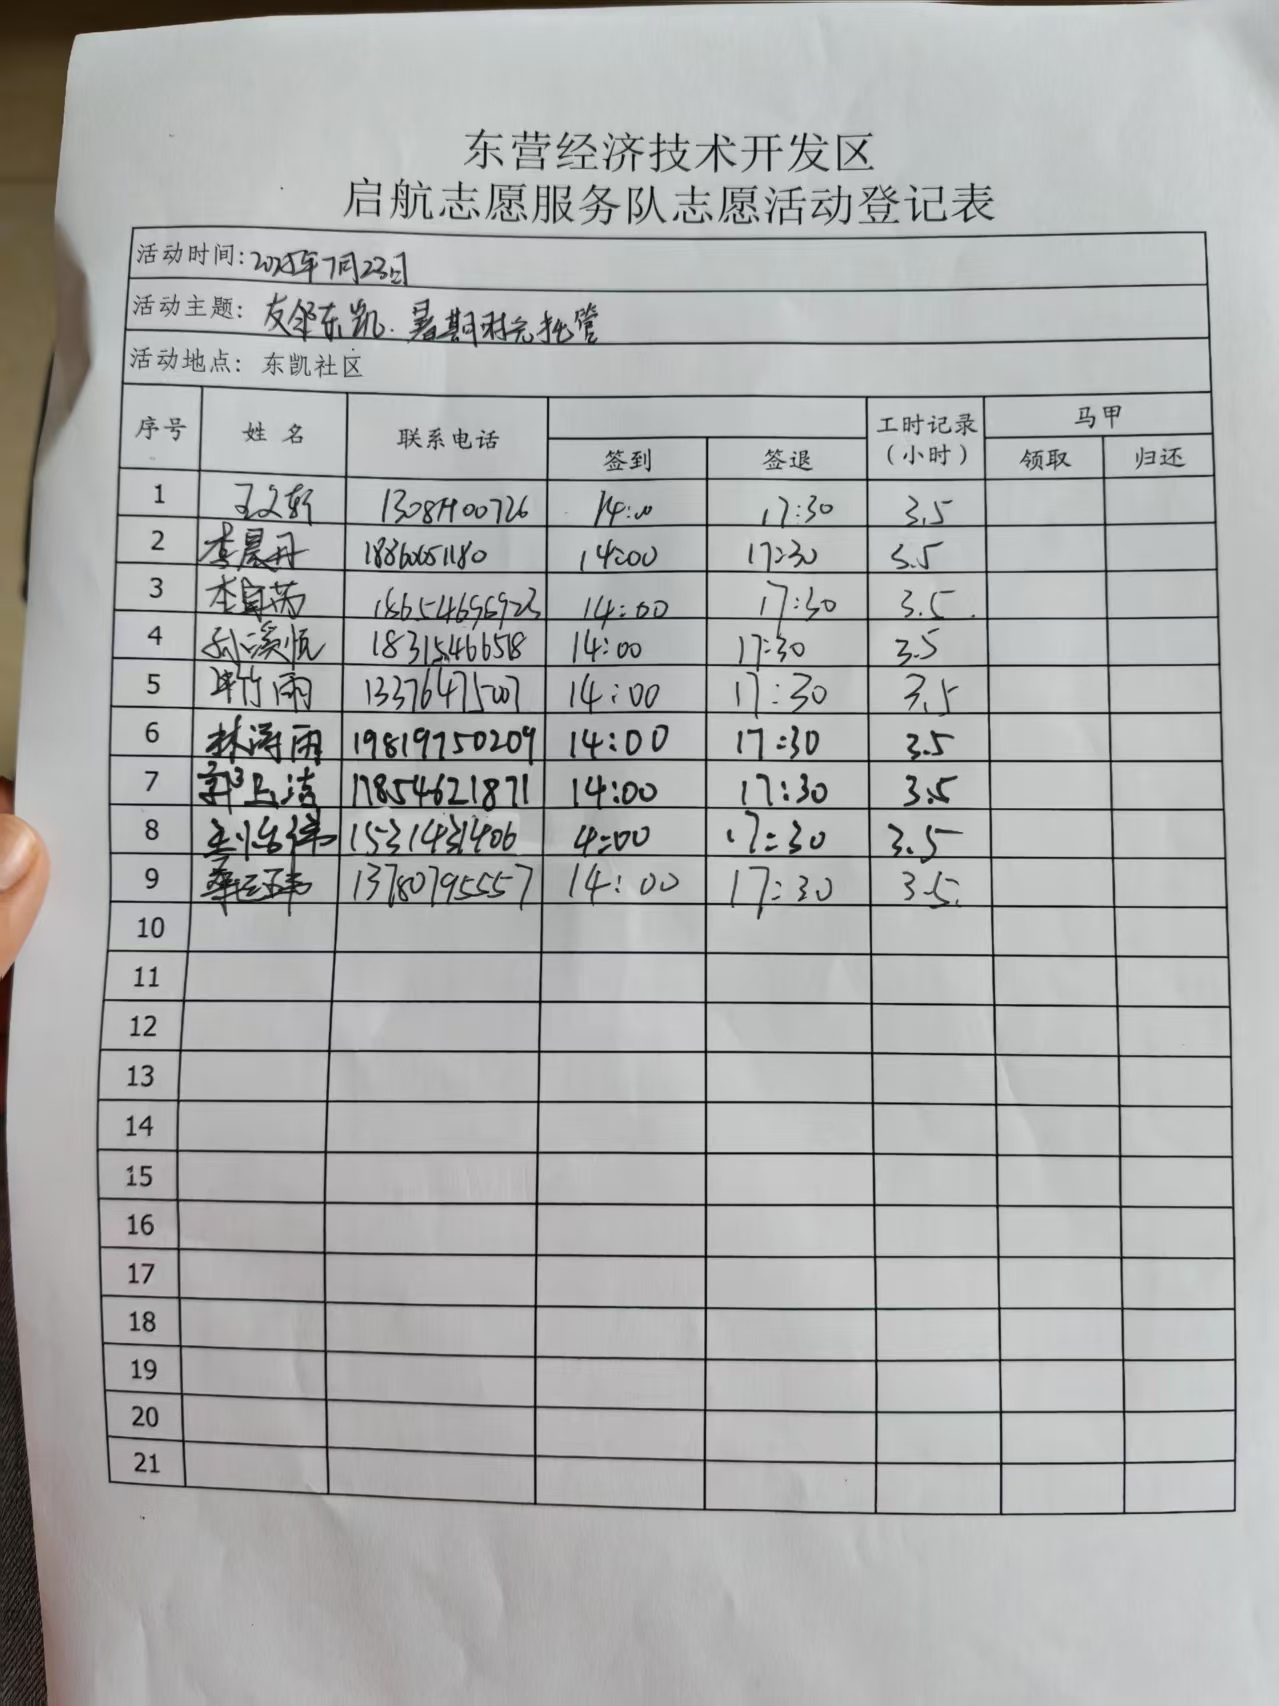 东营经济技术开发区
启航志愿服务队志愿活动登记表
活动时间: 2025年7月23日
活动主题: 友邻东凯.暑期时光托管
活动地点: 东凯社区
序号 姓名 联系电话 签到 签退 工时记录(小时) 马甲 领取 归还
1 王文轩 14:00 17:30 3.5
2 李晨丹 14:00 17:30 3.5
3 14:00 17:30 3.5
4 孙溪恒 18315466518 14:00 17:30 3.5
5 竹雨 13376475007 14:00 17:30 3.5
6 林涛雨 19819750209 14:00 17:30 3.5
7 17854621871 14:00 17:30 3.5
8 4:00 17:30 3.5
9 13780795557 14:00 17:30 3.5
10
11
12
13
14
15
16
17
18
19
20
21